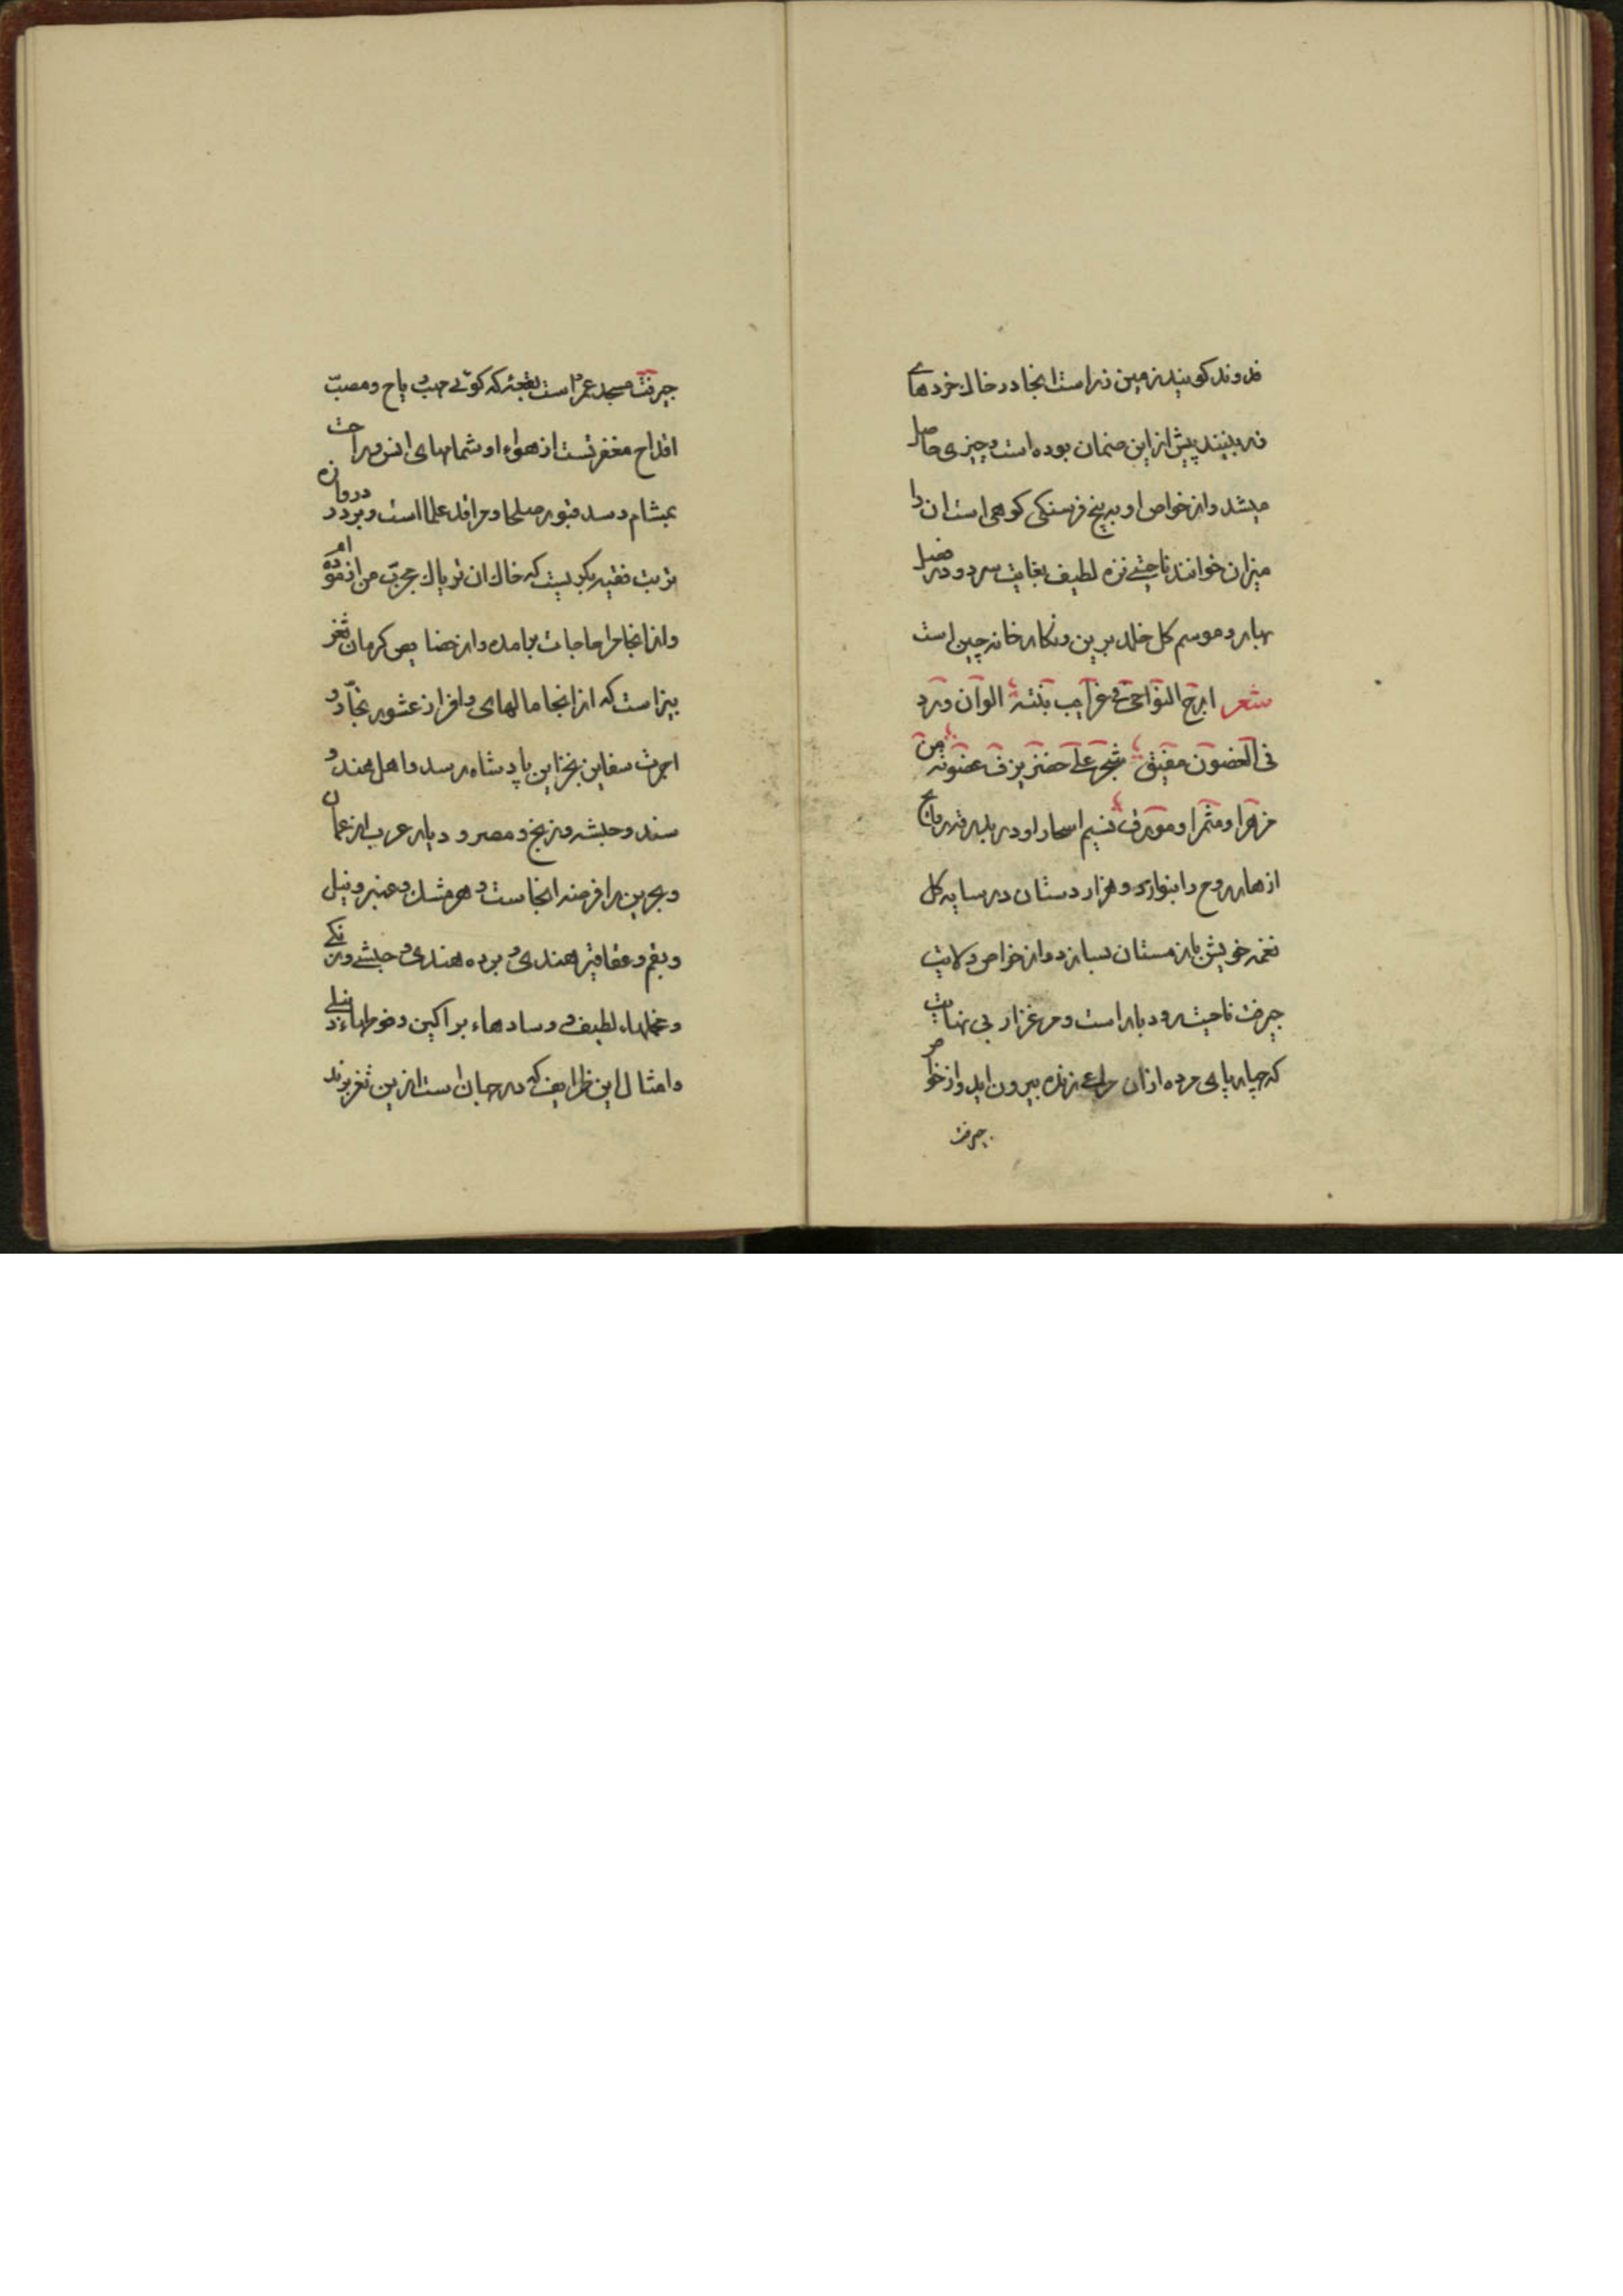 فدوند کویند زمین زر است انجا در خاك خردهای
زر بینند پیش از این ضمان بوده است و چیزی حاصل
میشد و از خواص او بر پنج فرسنکی کوهی است ان را
میزان خوانند ناحیتی نزه لطیف بغایت سرد و در فصل
بهار و موسم کل خلد برین و نکارخانه چین است
شعر ابرج النواحی غرایب بنته الوان ورد
فی الغصون مفیق شجر علی خضر یرف غصونه من
مزهرا و مثمرا و مورق نسیم اسحار او در بلبر قدر رواج
ازهار روح را بنوازد و هزار دستان در سایه کل
نغمه خویش باز مستان بسازد و از خواص ولایت
جیرفت ناحیت رودبار است و مرغزار بی نهایت
که چهار پای مرده از ان مراعی زنده بیرون اید و از خواص
جیرفت
جیرفت مسجد عمر است بقعه که کوئی مهب ریاح و مصب
اقداح مغفرتست از هواء او شمامهای انس و راحت
بمشام رسد قبور صلحا و مراقد علما است و بر در دروازه
تربت فقیه بکریست که خاك ان تریاك مجرب من ازموده ام
و از انجا مرا حاجات برامده و از خصایص کرمان ثغر
تیز است که از انجا مالهای وافر از عشور تجار و
اجرت سفاین بخزاین پادشاه رسد و اهل هند و
سند و حبشه و زنج و مصر و دیار عرب از عمان
و بحرین را فرضه انجاست و هر مشك و عنبر و نیل
و بقم و عقاقیر هندی و برده هندی و حبشی و زنکی
و مخملهاء لطیف و وسادهاء پراکین و فوطهاء دنبلی
و امثال این ظرایف که در جهان است ازین ثغر برند